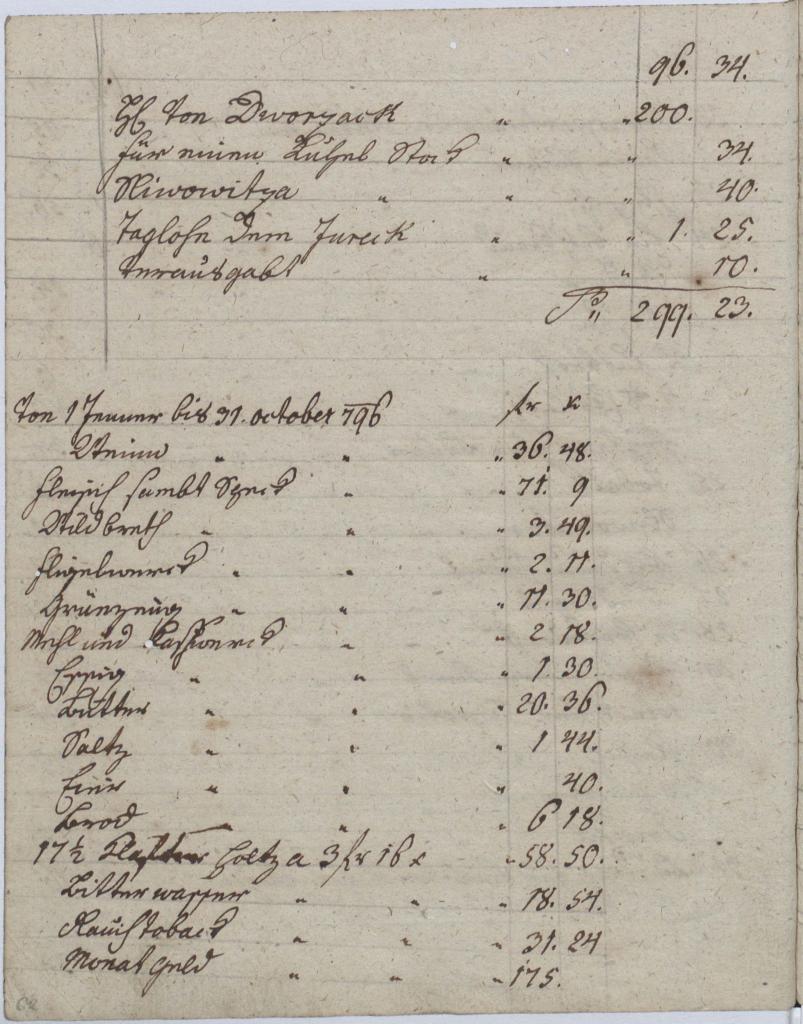 96. 34.
H. von Dworzack " " 200.
für einen Kugel Stock " " 34.
Sliwowitza " " " 40.
Taglohn dem Jureck " " 1. 25.
verausgabt " " 10.
S: 299. 23.
Von 1 Jenner bis 31. october 796 fr x
Weinn " " " 36. 48.
Fleisch sambt Speck " " 71. 9
Wildbreth " " " 3. 49.
Fligelwerck " " " 2. 11.
Grüenzeüg " " " 11. 30.
Mehl und " " 2 18.
Essig " " " 1. 30.
Butter " " " 20. 36.
Saltz " " " 1 44.
Eier " " " 40.
Brod " " " 6 18.
17½ Klafter Holtz a 3 fr 16 x " 58. 50.
Bitter wasser " " " 18. 54.
Rauchtoback " " " 31. 24
Monat geld " " " 175.